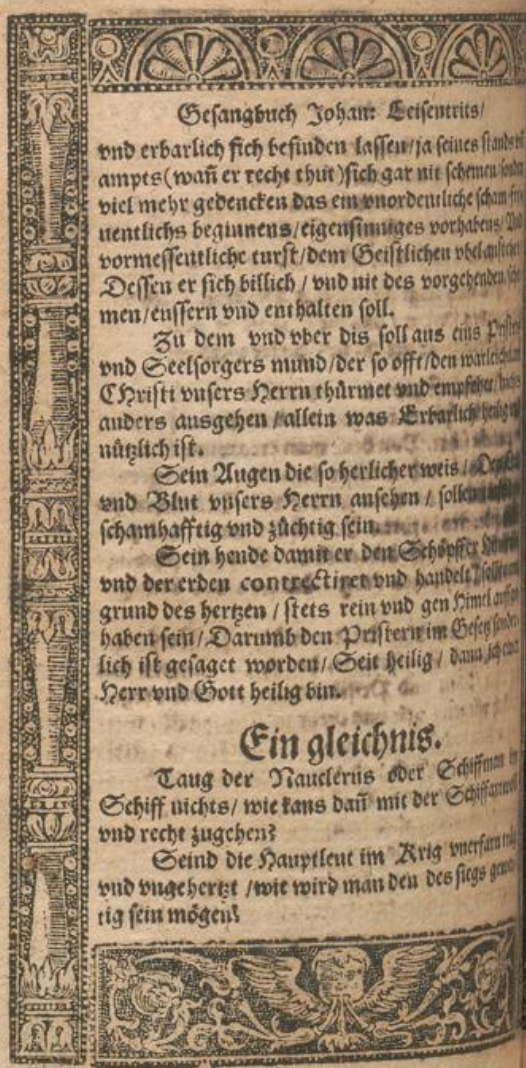 Gesangbuch Johan: Leisentrits/
vnd erbarlich sich befinden lassen/ja seines stands
ampts(wañ er recht thut)sich gar nit schemen/
viel mehr gedencken das ein vnordentliche scham
uentlichs beginnens/eigensinniges vorhabens/
vormessentliche turst/dem Geistlichen vbel
Dessen er sich billich / vnd nit des vorgehenden/
men/eussern vnd enthalten soll.
Zu dem vnd vber dis soll aus eins
vnd Seelsorgers mund/der so offt/den
CHristi vnsers Herrn thürmet vnd empfehet/
anders ausgehen/allein was Erbarlich/
nützlich ist.
Sein Augen die so herlicher weis/
vnd Blut vnsers Herrn ansehen / sollen
schamhafftig vnd züchtig sein.
Sein hende damit er den Schöpffer
vnd der erden contrectiret vnd handelt/
grund des hertzen / stets rein vnd gen Himel
haben sein/Darumb den Pristern im Gesetz
lich ist gesaget worden/Seit heilig / dann ich
Herr vnd Gott heilig bin.
Ein gleichnis.
Taug der Nauclerus oder Schiffman im
Schiff nichts/ wie kans dañ mit der
vnd recht zugehen?
Seind die Hauptleut im Krig vnerfarn
vnd vngehertzt /wie wird man den des siegs
tig sein mögen?